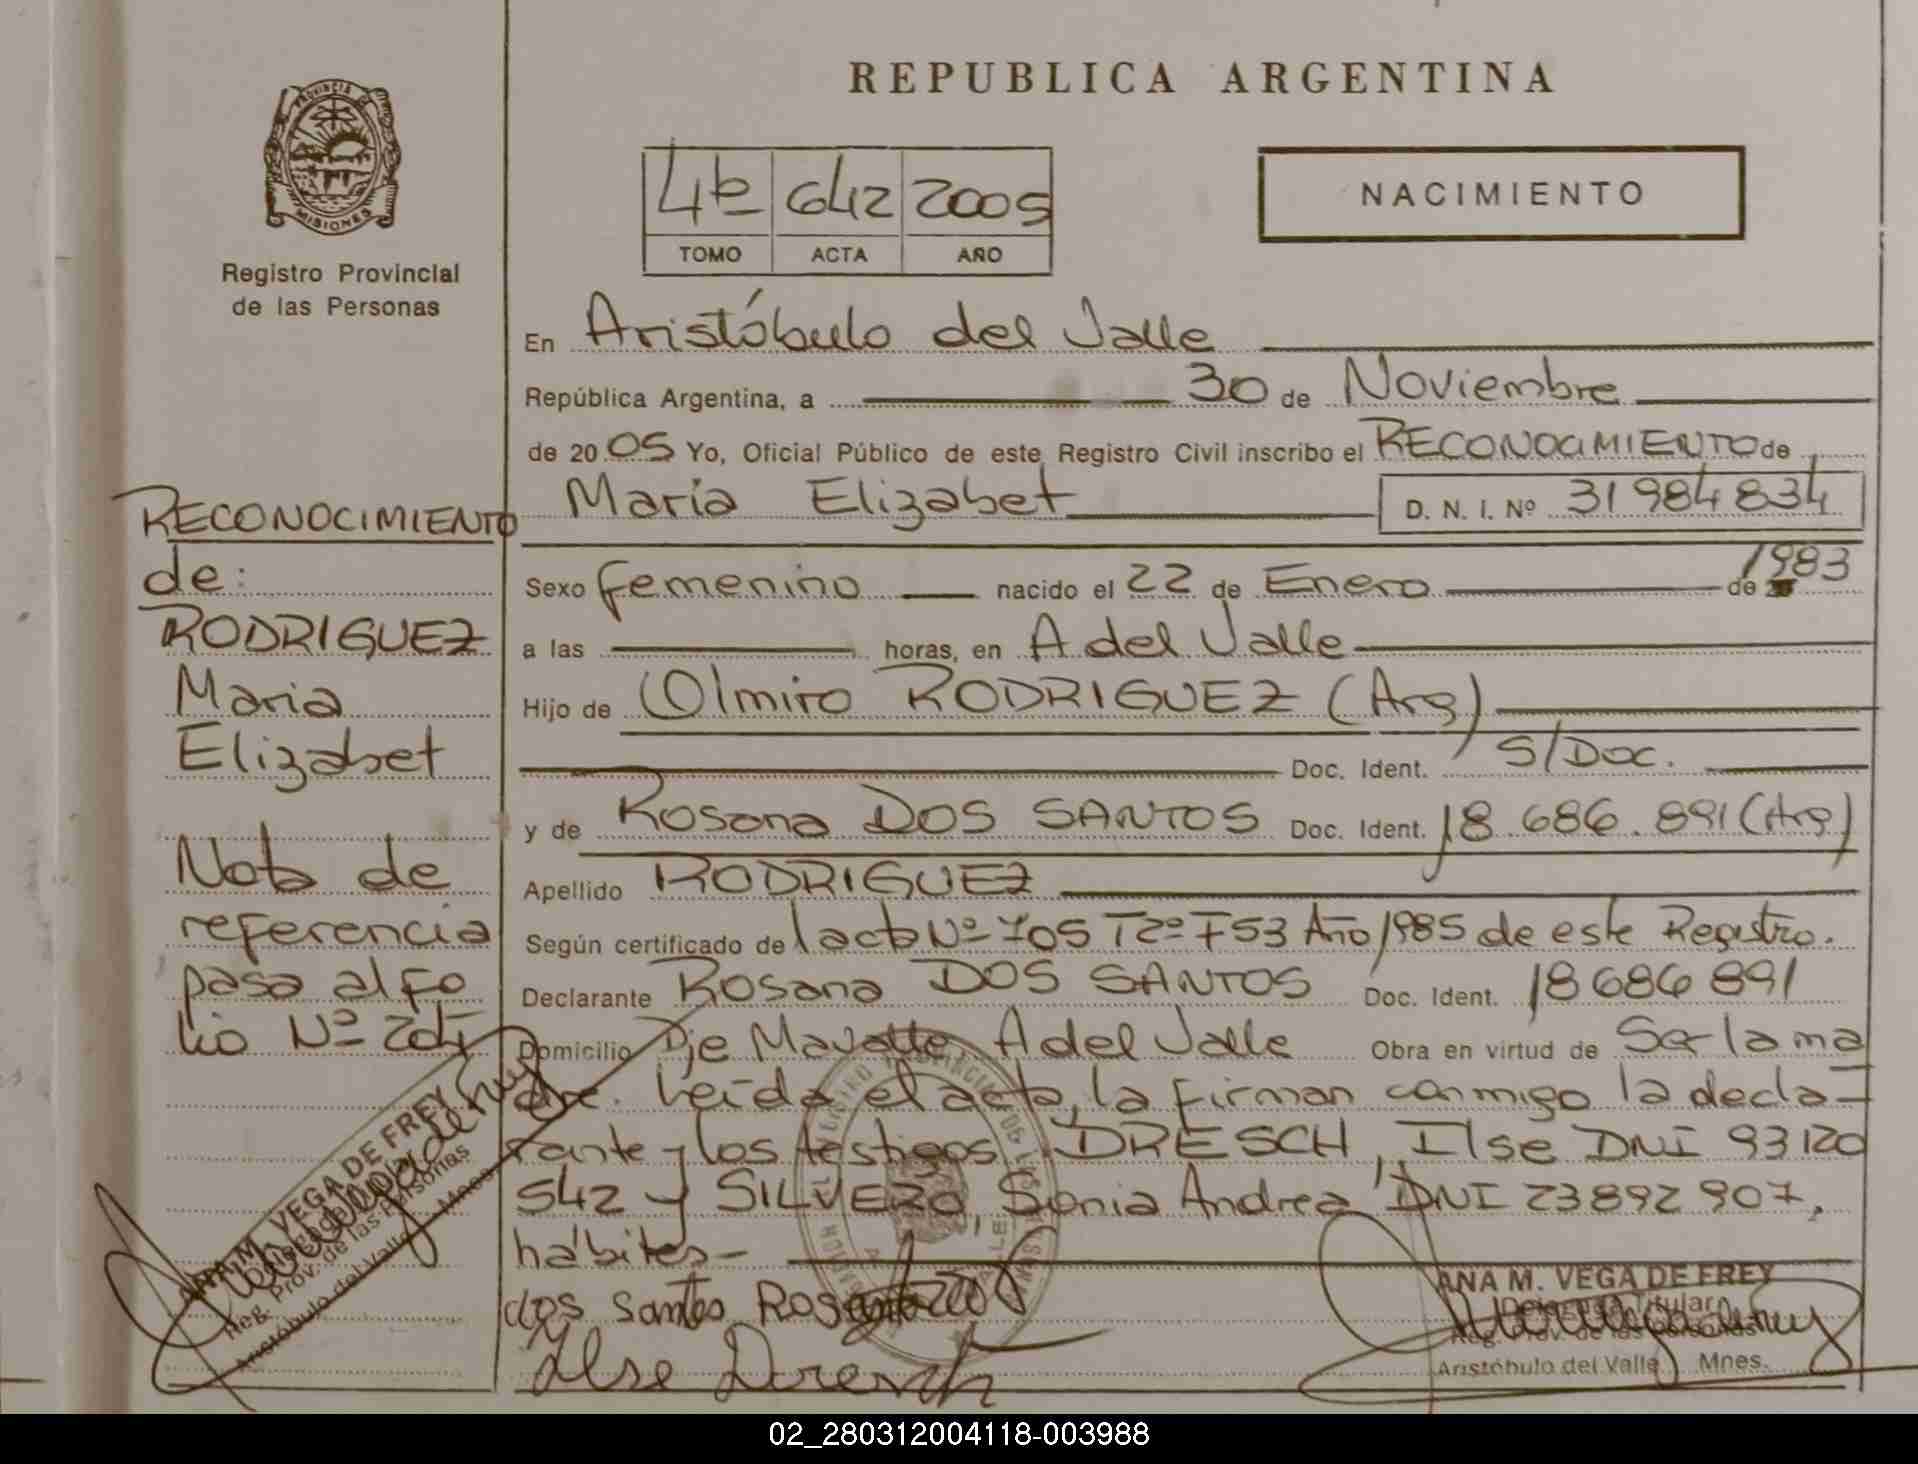 PROVINCIA DE
MISIONES
Registro Provincial
de las Personas
RECONOCIMIENTO
de:
RODRIGUEZ
Maria
Elizabet
Nota de
referencia
pasa al fo
lio Nº
ANA M. VEGA DE FREY
Reg. Prov. de las Personas
Aristóbulo del Valle Mnes.
REPUBLICA ARGENTINA
4º 642 2005
TOMO ACTA AÑO
NACIMIENTO
En Aristóbulo del Valle
República Argentina, a 30 de Noviembre
de 2005 Yo, Oficial Público de este Registro Civil inscribo el RECONOCIMIENTO de
María Elizabet D. N. I. Nº 31984834
Sexo femenino nacido el 22 de Enero de 1983
a las horas, en A del Valle
Hijo de Olmiro RODRIGUEZ (Arg)
Doc. Ident. S/Doc.
y de Rosana DOS SANTOS Doc. Ident. 18.686.891 (Arg)
Apellido RODRIGUEZ
Según certificado de l acta Nº 705 T2º F53 Año 1985 de este Registro.
Declarante Rosana DOS SANTOS Doc. Ident. 18686891
Domicilio Pje A del Valle Obra en virtud de Ser la ma
dre. Leída el acta, la firman conmigo la decla-
rante y los testigos, DRESCH, Ilse DNI 93120
542 y SILVERO, Sonia Andrea DNI 23892907,
hábiles-
dos santos Rosana
Ilse Dresch
ANA M. VEGA DE FREY
Delegada Titular
Reg. Prov. de las Personas
Aristóbulo del Valle Mnes.
02_280312004118-003988